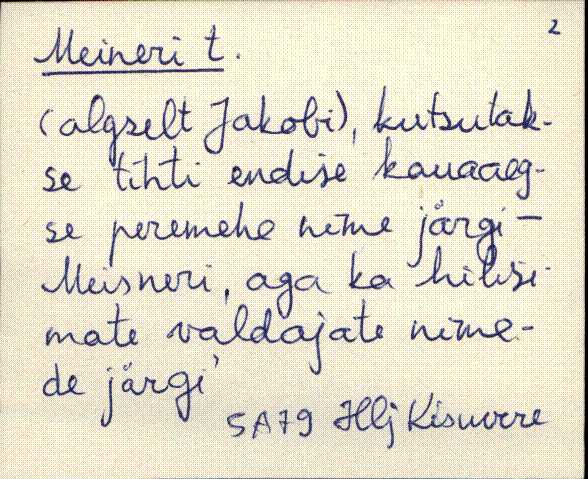 2
Meineri t.
(algselt Jakobi), kutsutak-
se tihti endise kauaaeg-
se peremehe nime järgi –
Meisneri, aga ka hilisi-
mate valdajate nime-
de järgi'
SA79 Hlj Kisuvere